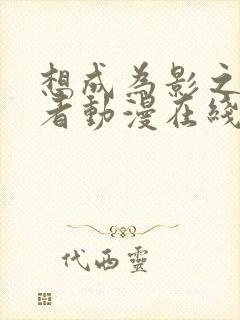 想成为影之
者動漫在綫
代西靈